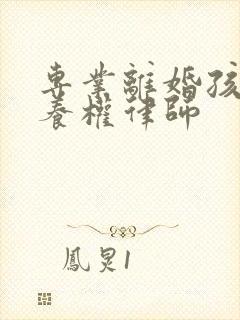 專業離婚孩
養權律師
鳳炅1